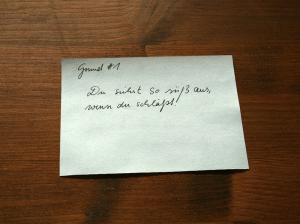 Grund #1
Du siehst so süß aus,
wenn du schläfst!